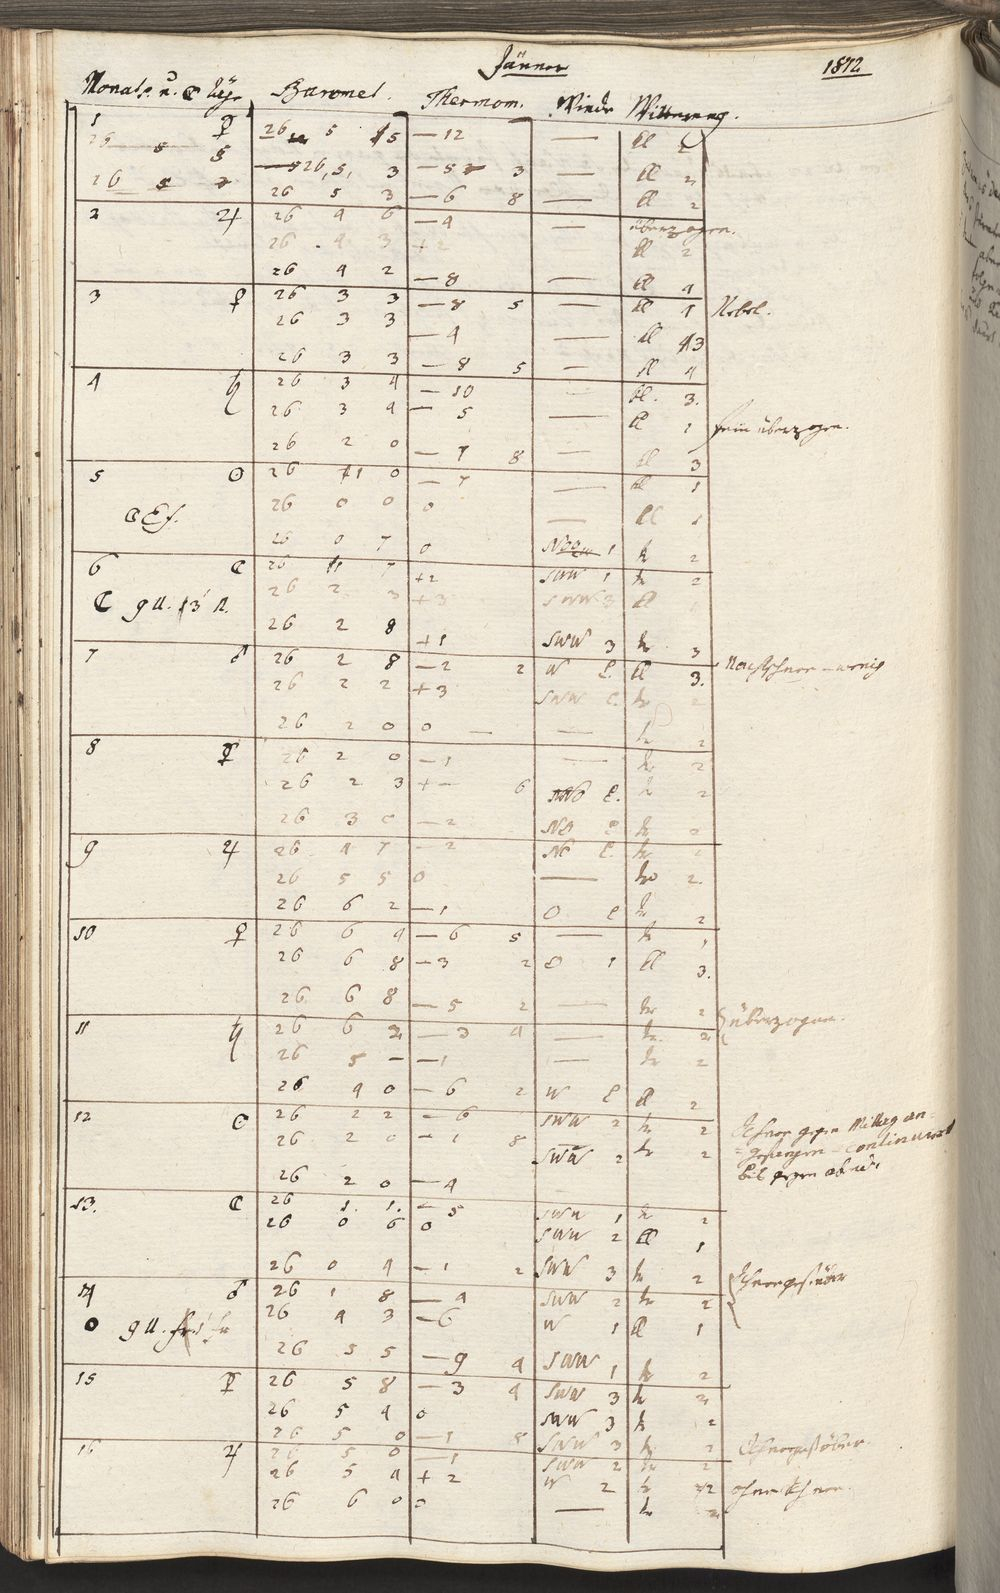 Jänner 1812
Monats u. ☾ Täg. Baromet. Thermom. Winde Witterung.
1 ☿ 26 5 5 — 12 — kl
26 5, 3 — 5 3 — kl 2
26 5 3 — 6 8 — kl 2
2 ♃ 26 4 6 — 4 — überzogen.
26 4 3 + 2 kl 2
26 4 2 — 8 — kl 4
3 ♀ 26 3 3 — 8 5 — kl 1 Nebel.
26 3 3 — 4 — kl 3
26 3 3 — 8 5 — kl 4
4 ♄ 26 3 4 — 10 — kl. 3.
26 3 4 — 5 — kl 1 fein überzogen.
26 2 0 — 7 8 — kl 3
5 ☉ 26 1 0 — 7 — kl 1
26 0 0 0 — kl 1
26 0 7 0 1 tr 2
6 ☾ 26 1 7 + 2 SWW 1 tr 2
26 2 3 + 3 SWW 3 kl
26 2 8 + 1 SWW 3 tr 3
7 ♂ 26 2 8 — 2 2 W l. kl 3. Nachtschnee – wenig
26 2 2 + 3 SWW l. tr 2
26 2 0 0 — — tr 2
8 ☿ 26 2 0 — 1 — tr 2
26 2 3 + — 6 NO l. tr 2
26 3 0 — 2 NO l tr 2
9 ♃ 26 4 7 — 2 NO l. tr
26 5 5 0 — tr 2.
26 6 2 — 1 O l tr 2
10 ♀ 26 6 4 — 6 5 — tr 1
26 6 8 — 3 2 O 1 kl 3.
26 6 8 — 5 2 — tr 2 überzogen.
11 ♄ 26 6 2 — 3 4 — tr. 2
26 5 — — 1 — tr 2
26 4 0 — 6 2 W l kl 2
12 ☉ 26 2 2 — 6 SWW 2 tr 2 Schnee gegen Mittag an-
26 2 0 — 1 8 SWW 2 tr 2 = gefangen – continuirt
26 2 0 — 4 bis gegen abend.
13. ☾ 26 1. 1. — 5 SWW 1 tr 2
26 0 6 0 SWW 2 kl 1
26 0 4 — 1 2 SWW 3 tr 2 Schneegestöber
14 ♂ 26 1 8 — 4 SWW 2 tr 2
26 4 3 — 6 W 1 kl 1
26 5 5 — 9 4 SWW 1 tr 2
15 ☿ 26 5 8 — 3 4 SWW 3 tr 2
26 5 4 0 SWW 3 tr 2
26 5 0 — 1 8 SWW 3 tr 2 Schneegestöber.
16 ♃ 26 5 0 — 1 SWW 2 tr 2
26 5 4 + 2 W 2 tr 2 ohne Schnee.
26 6 0 0 — tr 2